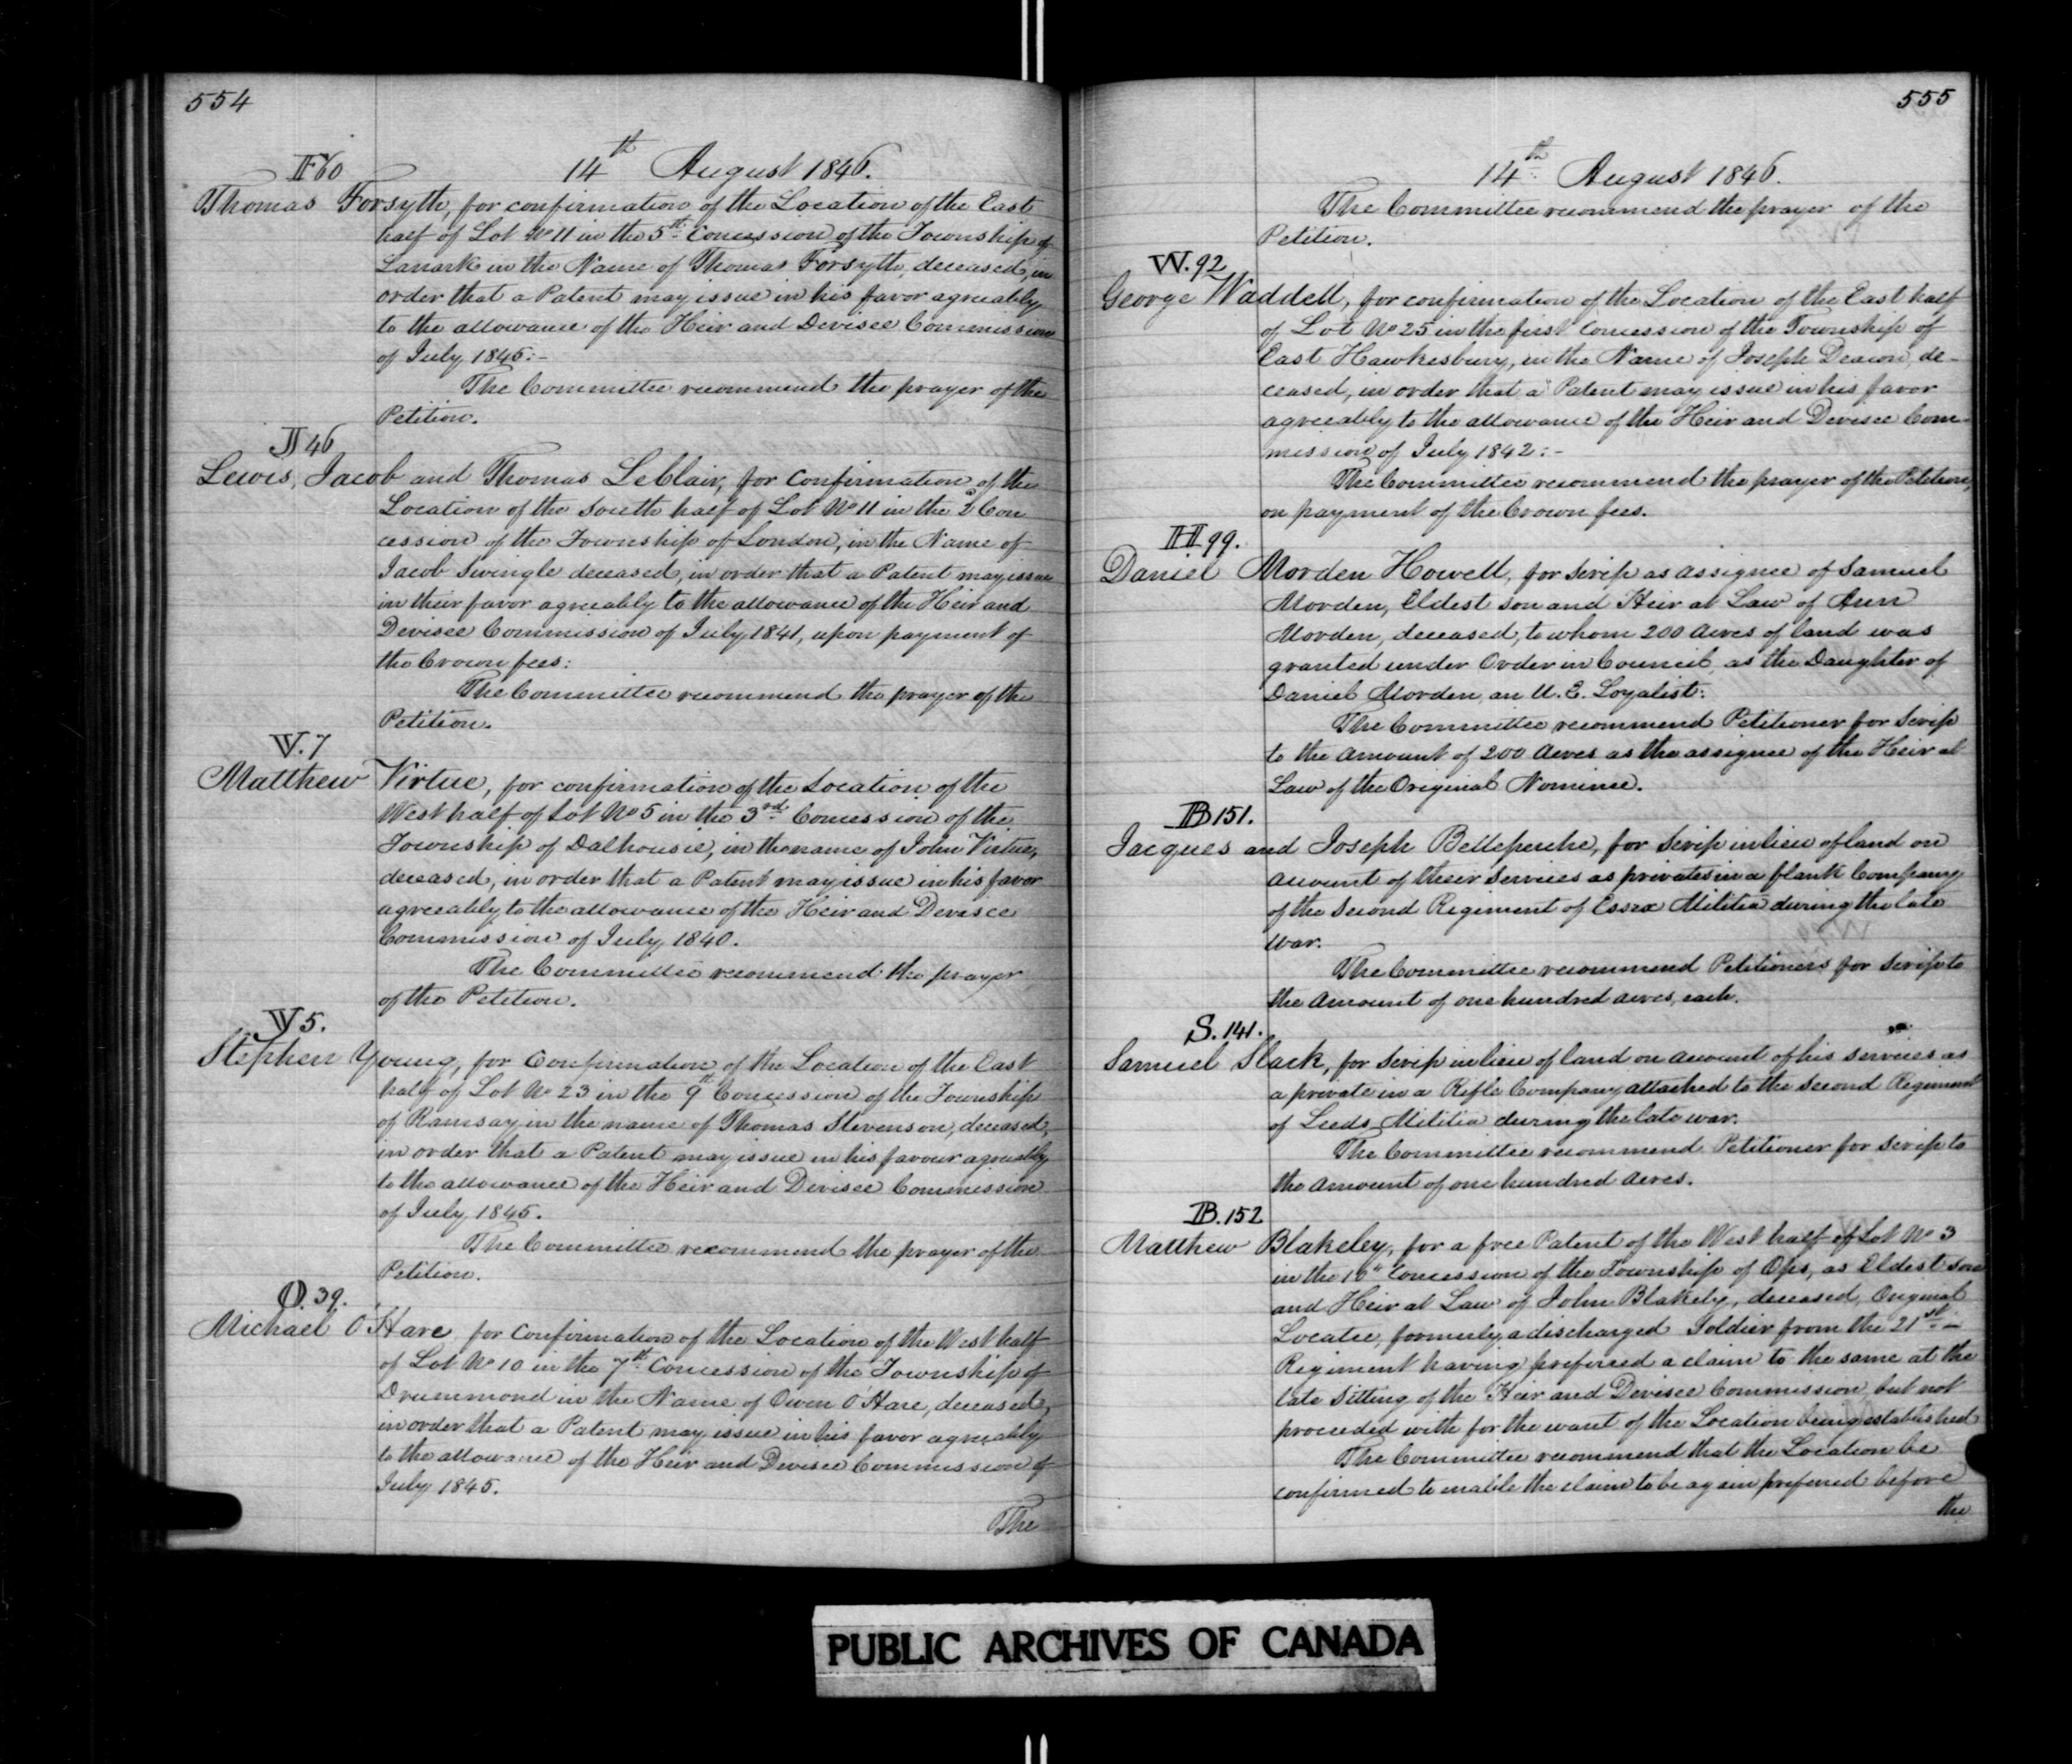 554
14th August 1846.
F 60
Thomas Forsyth, for confirmation of the Location of the East
half of Lot No 11 in the 5th Concession of the Township of
Lanark in the Name of Thomas Forsyth, deceased, in
order that a Patent may issue in his favor agreeably
to the allowance of the Heir and Devisee Commission
of July 1845:-
The Committee recommend the prayer of the
Petition.
46
Lewis, Jacob and Thomas Leblair, for Confirmation of the
Location of the South half of Lot No 11 in the 2 Con
cession of the Township of London, in the Name of
Jacob Swingle deceased, in order that a Patent may issue
in their favor agreeably to the allowance of the Heir and
Devisee Commission of July 1841, upon payment of
the Crown fees:
The Committee recommend the prayer of the
Petition.
V. 7
Matthew Virtue, for confirmation of the Location of the
West half of Lot No 5 in the 3rd Concession of the
Township of Dalhousie, in the name of John Virtue,
deceased, in order that a Patent may issue in his favor
agreeably to the allowance of the Heir and Devisee
Commission of July 1840.
The Committee recommend the prayer
of the Petition.
5.
Stephen Young, for Confirmation of the Location of the East
half of Lot No 23 in the 9th Concession of the Township
of Ramsay in the name of Thomas Stevenson, deceased,
in order that a Patent may issue in his favour agreeably
to the allowance of the Heir and Devisee Commission
of July 1845.
The Committee recommend the prayer of the
Petition.
O. 39.
Michael O'Hare, for Confirmation of the Location of the West half
of Lot No 10 in the 7th Concession of the Township of
Drummond in the Name of Owen O'Hare, deceased,
in order that a Patent may issue in his favor agreeably
to the allowance of the Heir and Devisee Commission of
July 1845.
The
555
14th August 1846.
The Committee recommend the prayer of the
Petition.
W. 92
George Waddell, for confirmation of the Location of the East half
of Lot No 25 in the first Concession of the Township of
East Hawkesbury, in the Name of Joseph Deacon, de-
ceased, in order that a Patent may issue in his favor
agreeably to the allowance of the Heir and Devisee Com-
mission of July 1842:-
The Committee recommend the prayer of the Petition,
on payment of the Crown fees.
H 99.
Daniel Morden Howell, for Scrip as assignee of Samuel
Morden, Eldest son and Heir at Law of Ann
Morden, deceased, to whom 200 Acres of land was
granted under Order in Council, as the Daughter of
Daniel Morden, an U. E. Loyalist:
The Committee recommend Petitioner for Scrip
to the amount of 200 Acres as the assignee of the Heir at
Law of the Original Nominee.
B 151.
Jacques and Joseph Belleperche, for Scrip in lieu of land on
account of their Services as privates in a flank Company
of the Second Regiment of Essex Militia during the late
war.
The Committee recommend Petitioners for Scrip to
the amount of one hundred acres, each.
S. 141.
Samuel Slack, for Scrip in lieu of land on account of his services as
a private in a Rifle Company attached to the Second Regiment
of Leeds Militia during the late war.
The Committee recommend Petitioner for Scrip to
the amount of one hundred acres.
B. 152
Matthew Blakeley, for a free Patent of the West half of Lot No 3
in the Concession of the Township of Ops, as Eldest son
and Heir at Law of John Blakely, deceased, Original
Locatee, formerly a discharged Soldier from the 21st -
Regiment having preferred a claim to the same at the
late Sitting of the Heir and Devisee Commission, but not
proceeded with for the want of the Location being established
The Committee recommend that the Location be
confirmed to enable the claim to be again preferred before
the
PUBLIC ARCHIVES OF CANADA